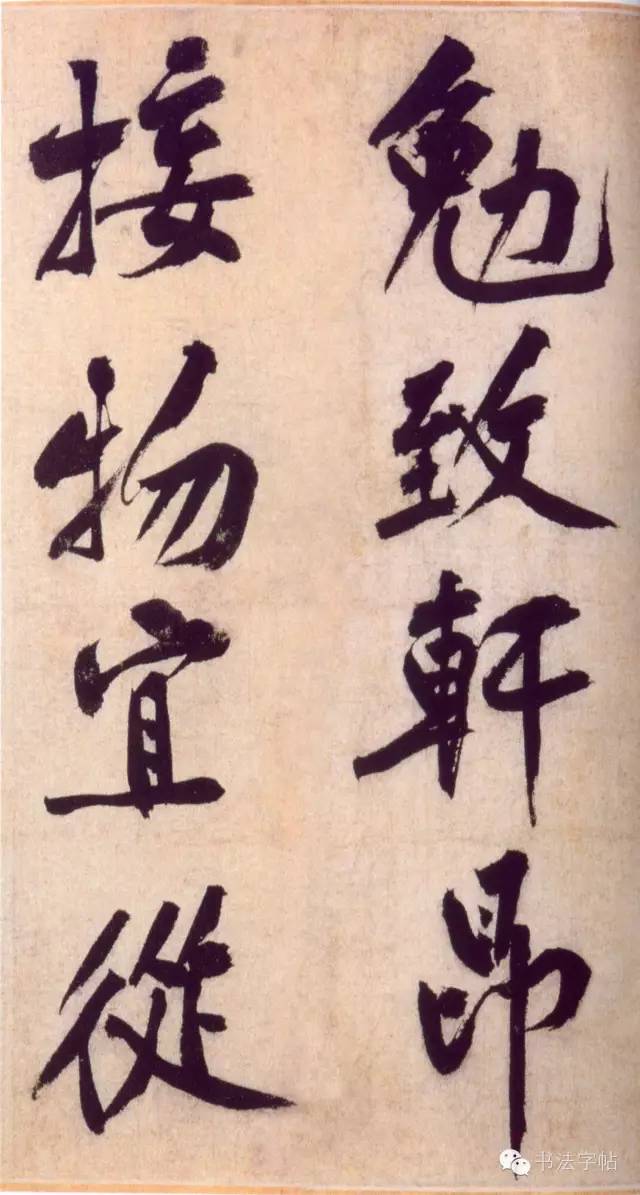 勉致軒昂
接物宜從
书法字帖